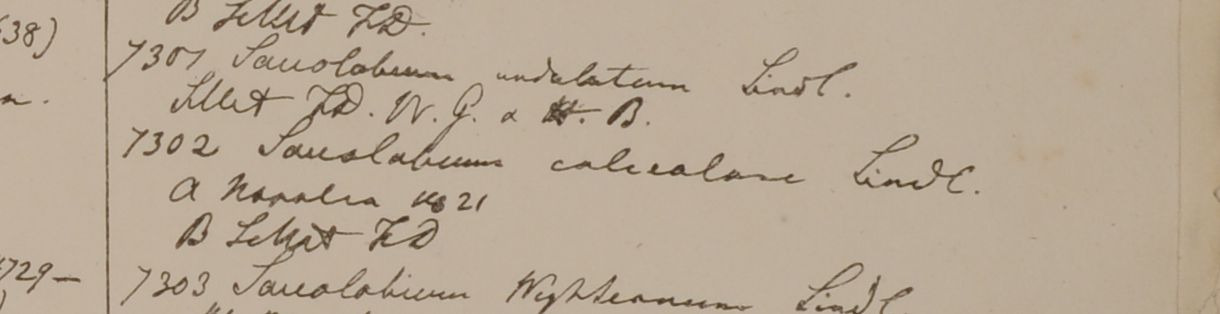 B Sillet F.D.
38)
7301 Saccolabium undulatum Lindl.
Sillet F.D. W. G. & H. B.
7302 Saccolabium calceolare Lindl.
a Napalia 1821
B Sillet F.D
729—
7303 Saccolabium Wightianum Lindl